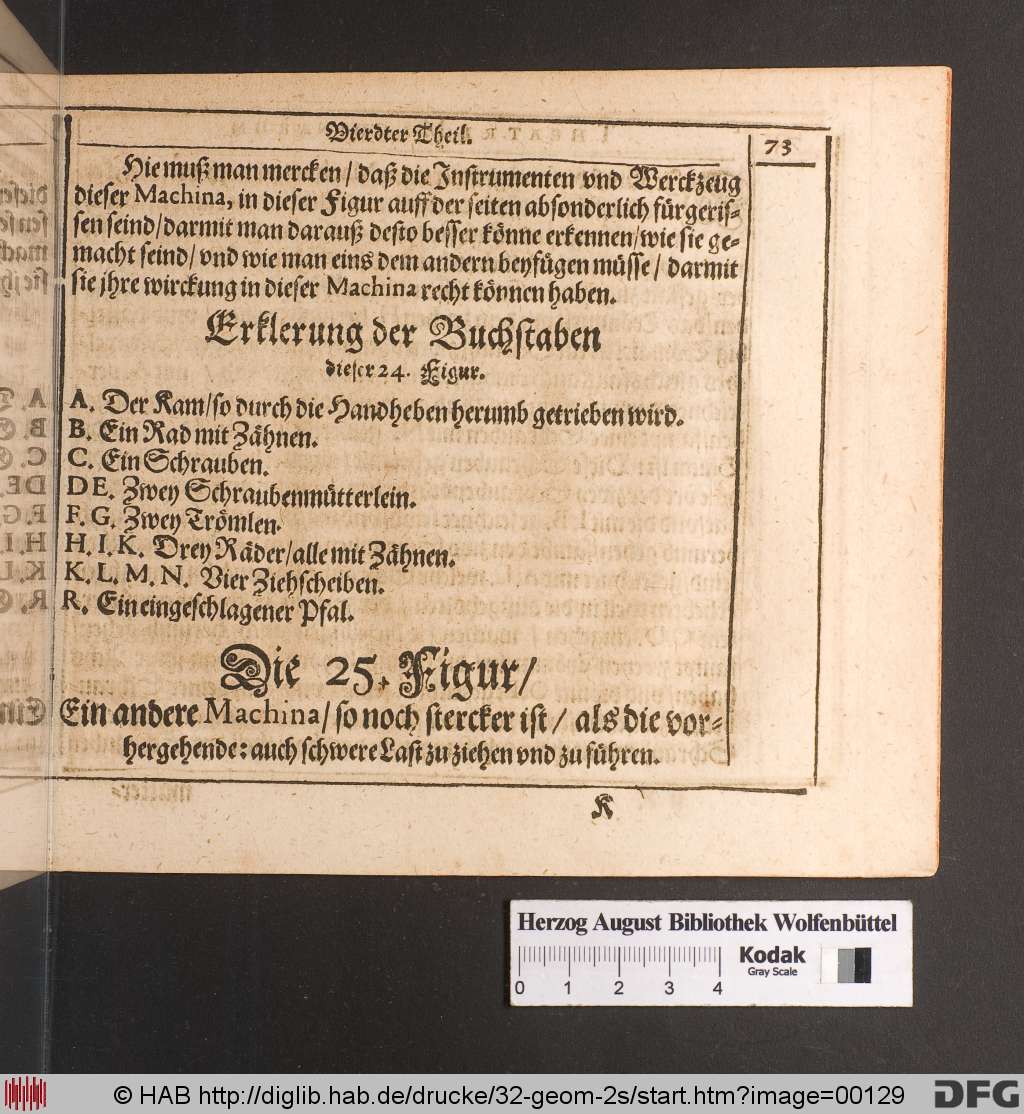 Vierdter Theil.
73
Hie muß man mercken / daß die Instrumenten vnd Werckzeug
dieser Machina, in dieser Figur auff der seiten absonderlich fürgeris-
sen seind / darmit man darauß desto besser könne erkennen / wie sie ge-
macht seind / vnd wie man eins dem andern beyfügen müsse / darmit
sie jhre wirckung in dieser Machina recht können haben.
Erklerung der Buchstaben
dieser 24. Figur.
A. Der Kam / so durch die Handheben herumb getrieben wird.
B. Ein Rad mit Zähnen.
C. Ein Schrauben.
DE. Zwey Schraubenmütterlein.
F. G. Zwey Trömlen.
H. I. K. Drey Räder / alle mit Zähnen.
K. L. M. N. Vier Ziehscheiben.
R. Ein eingeschlagener Pfal.
Die 25. Figur /
Ein andere Machina / so noch stercker ist / als die vor-
hergehende: auch schwere Last zu ziehen vnd zu führen.
K
Herzog August Bibliothek Wolfenbüttel
Kodak
Gray Scale
0 1 2 3 4
© HAB http://diglib.hab.de/drucke/32-geom-2s/start.htm?image=00129
DFG